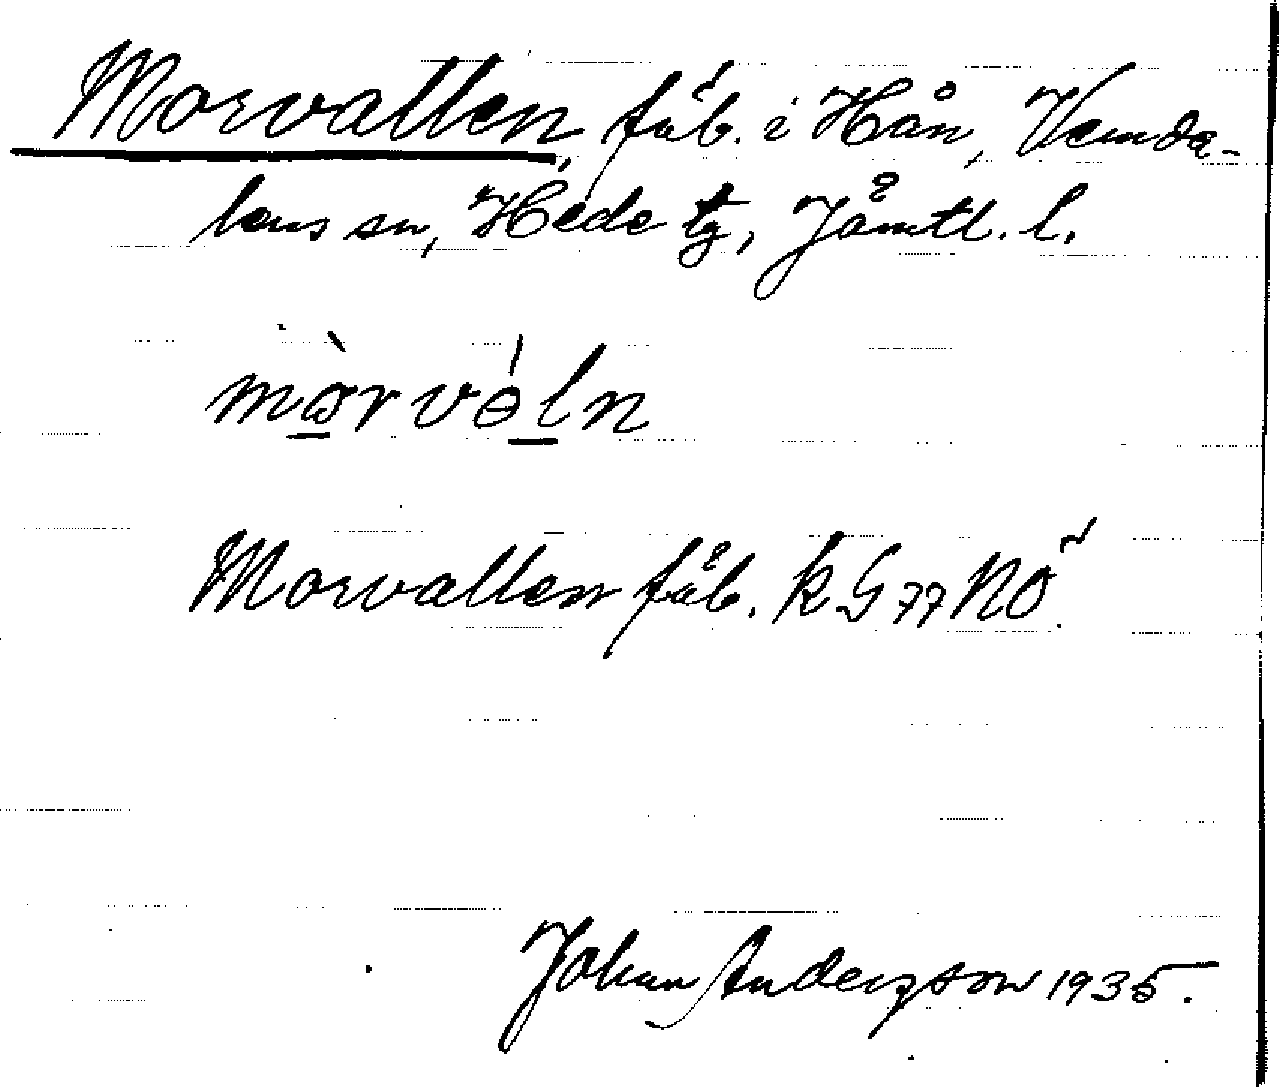 Morvallen, fäb. i Hån, Vemda-
lens sn, Hede tg, Jämtl. l.
mòrvóln
Morvallen fäb. k G 77 NÖ.
Johan Andersson 1935.